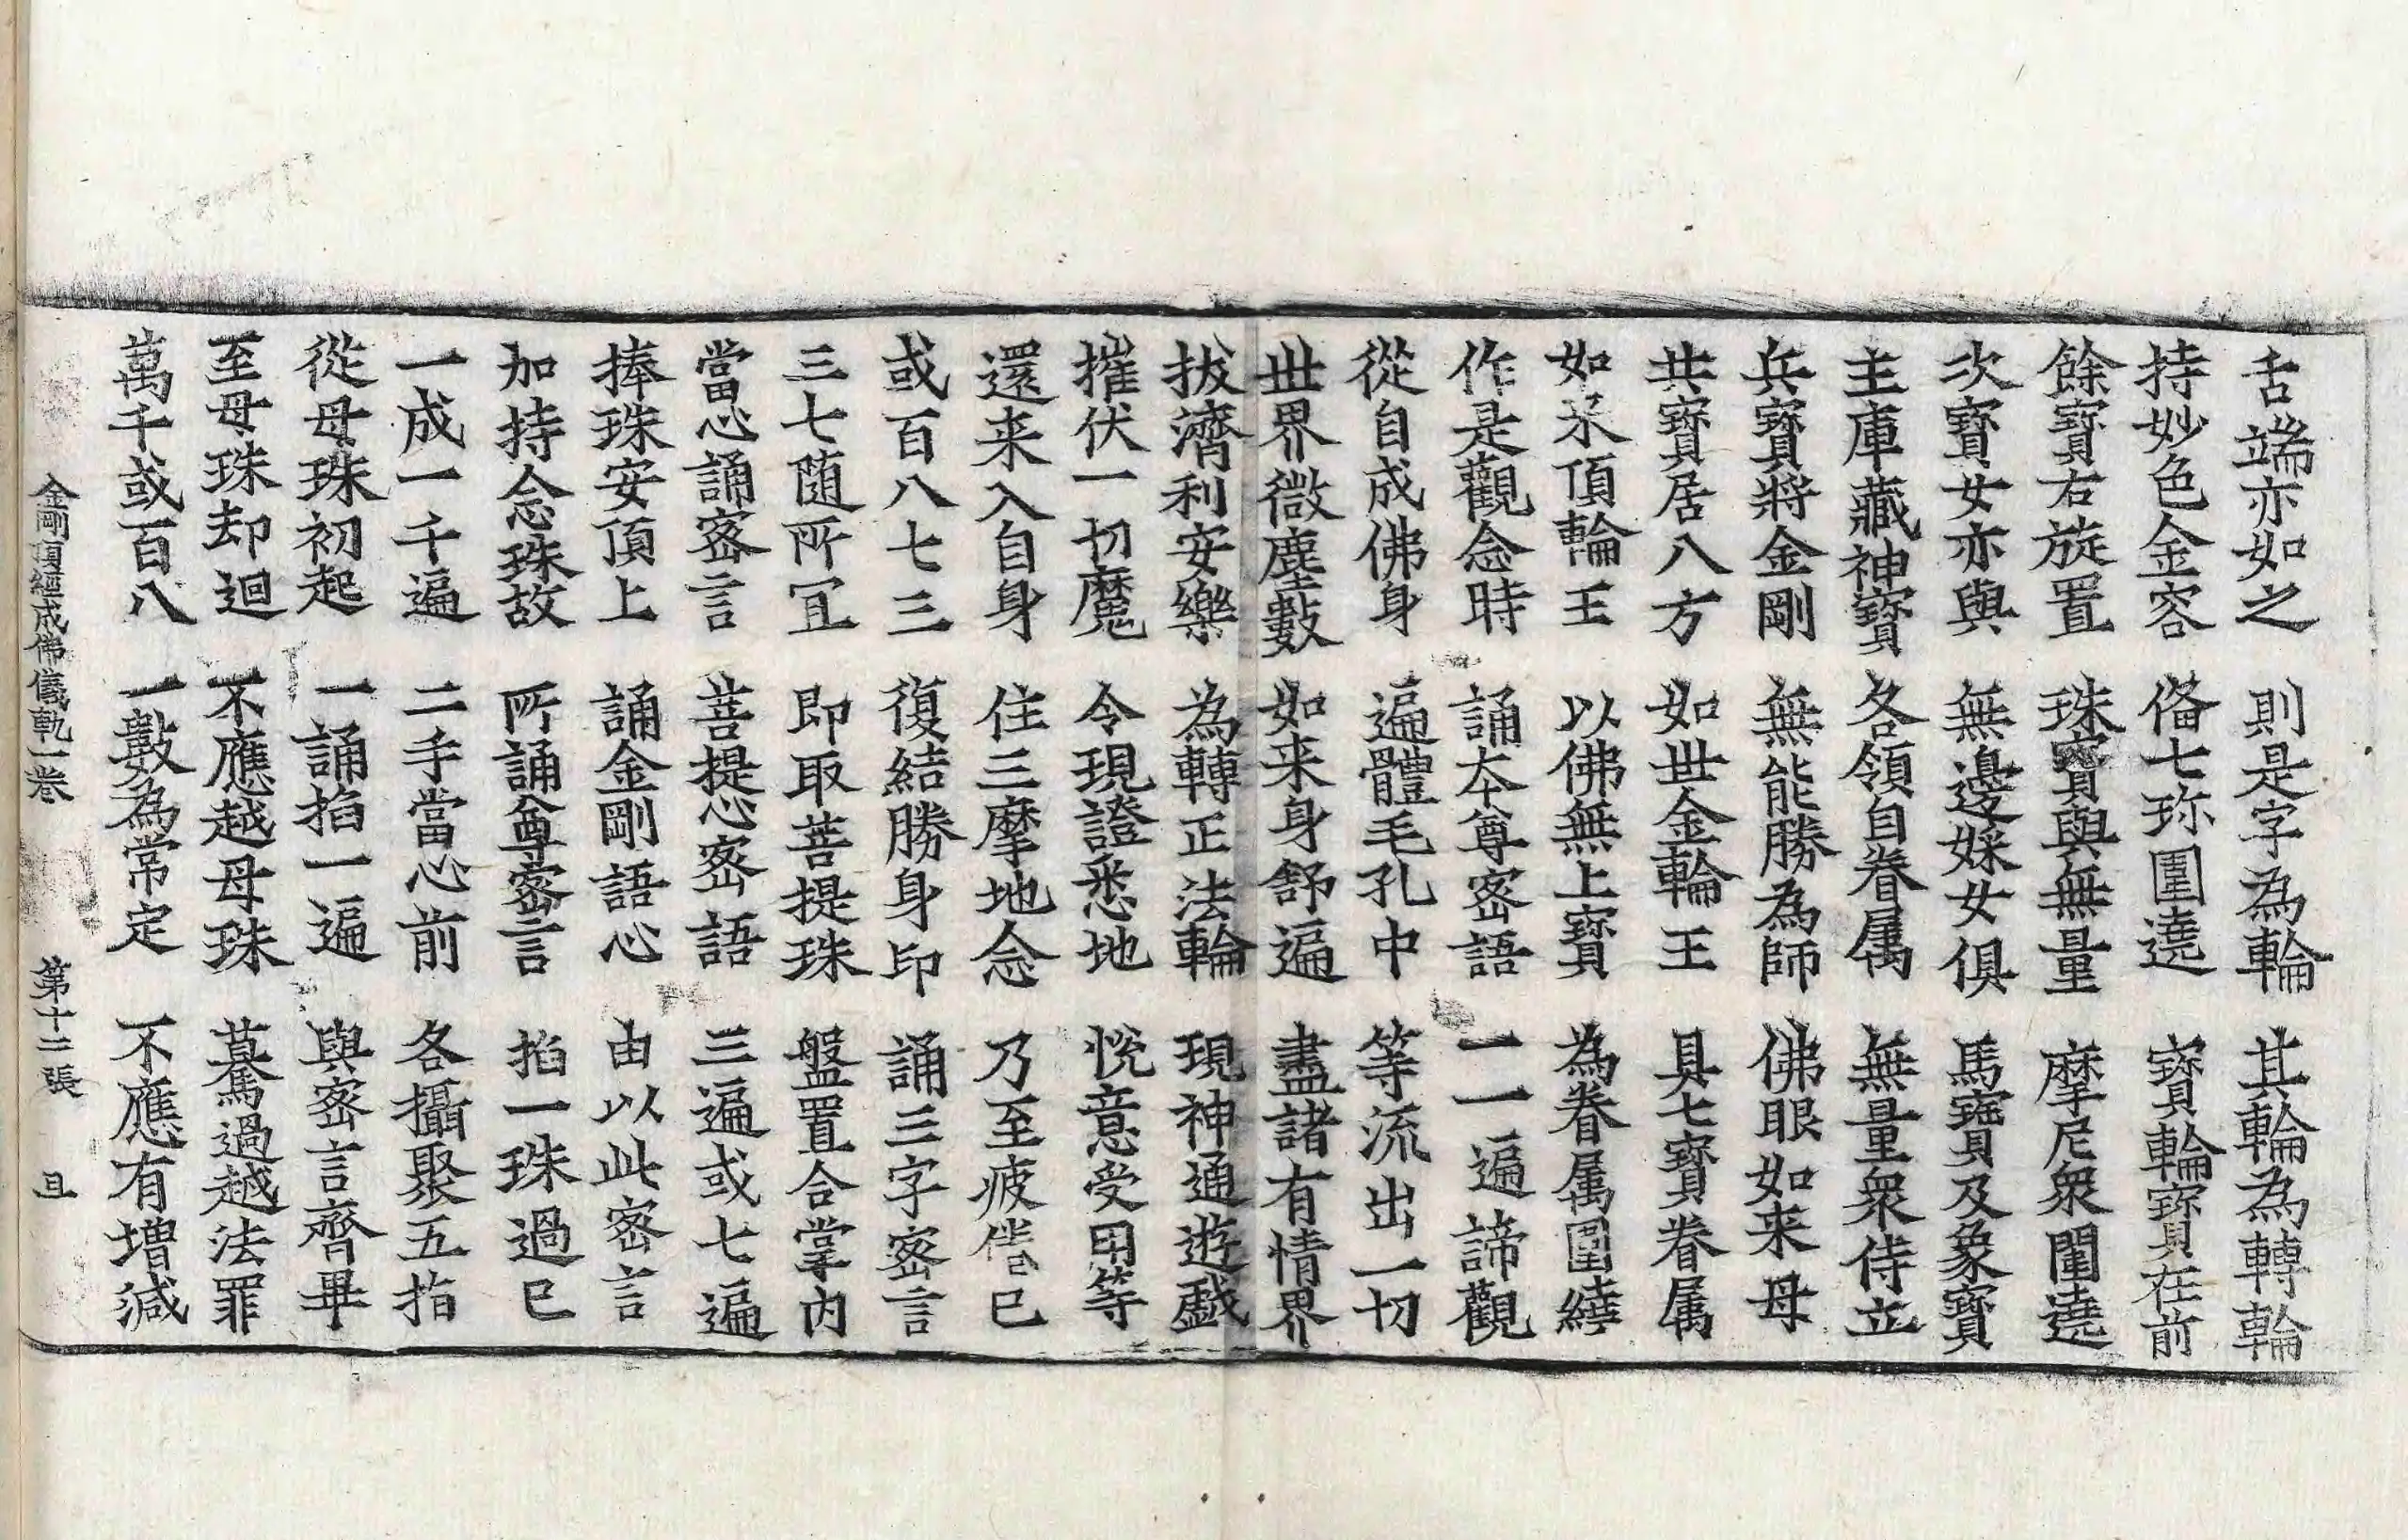 舌端亦如之　則是字為輪　其輪為轉輪
持妙色金容　俻七珎圍遶　寶輪寶在前
餘寶右旋置　珠寶與無量　摩尼衆圍遶
次寶女亦與　無邊婇女俱　馬寶及象寶
主庫藏神寶　各領自眷属　無量衆侍立
兵寶將金剛　無能勝為師　佛眼如来母
共寶居八方　如世金輪王　具七寶眷属
如来頂輪王　以佛無上寶　為眷属圍繞
作是觀念時　誦本尊密語　一一遍諦觀
從自成佛身　遍體毛孔中　等流出一切
世界微塵數　如来身舒遍　盡諸有情界
拔濟利安樂　為轉正法輪　現神通遊戲
摧伏一切魔　令現證悉地　悅意受用等
還来入自身　住三摩地念　乃至疲惓已
或百八七三　復結勝身印　誦三字密言
三七随所冝　即取菩提珠　盤置合掌內
當心誦密言　菩提心密語　三遍或七遍
捧珠安頂上　誦金剛語心　由以此密言
加持念珠故　所誦尊密言　掐一珠過已
一成一千遍　二手當心前　各攝聚五指
從母珠初起　一誦掐一遍　與密言齊畢
至母珠却迴　不應越母珠　驀過越法罪
萬千或百八　一數為常定　不應有增減
金剛頂經成佛儀軌一卷　第十二張　旦